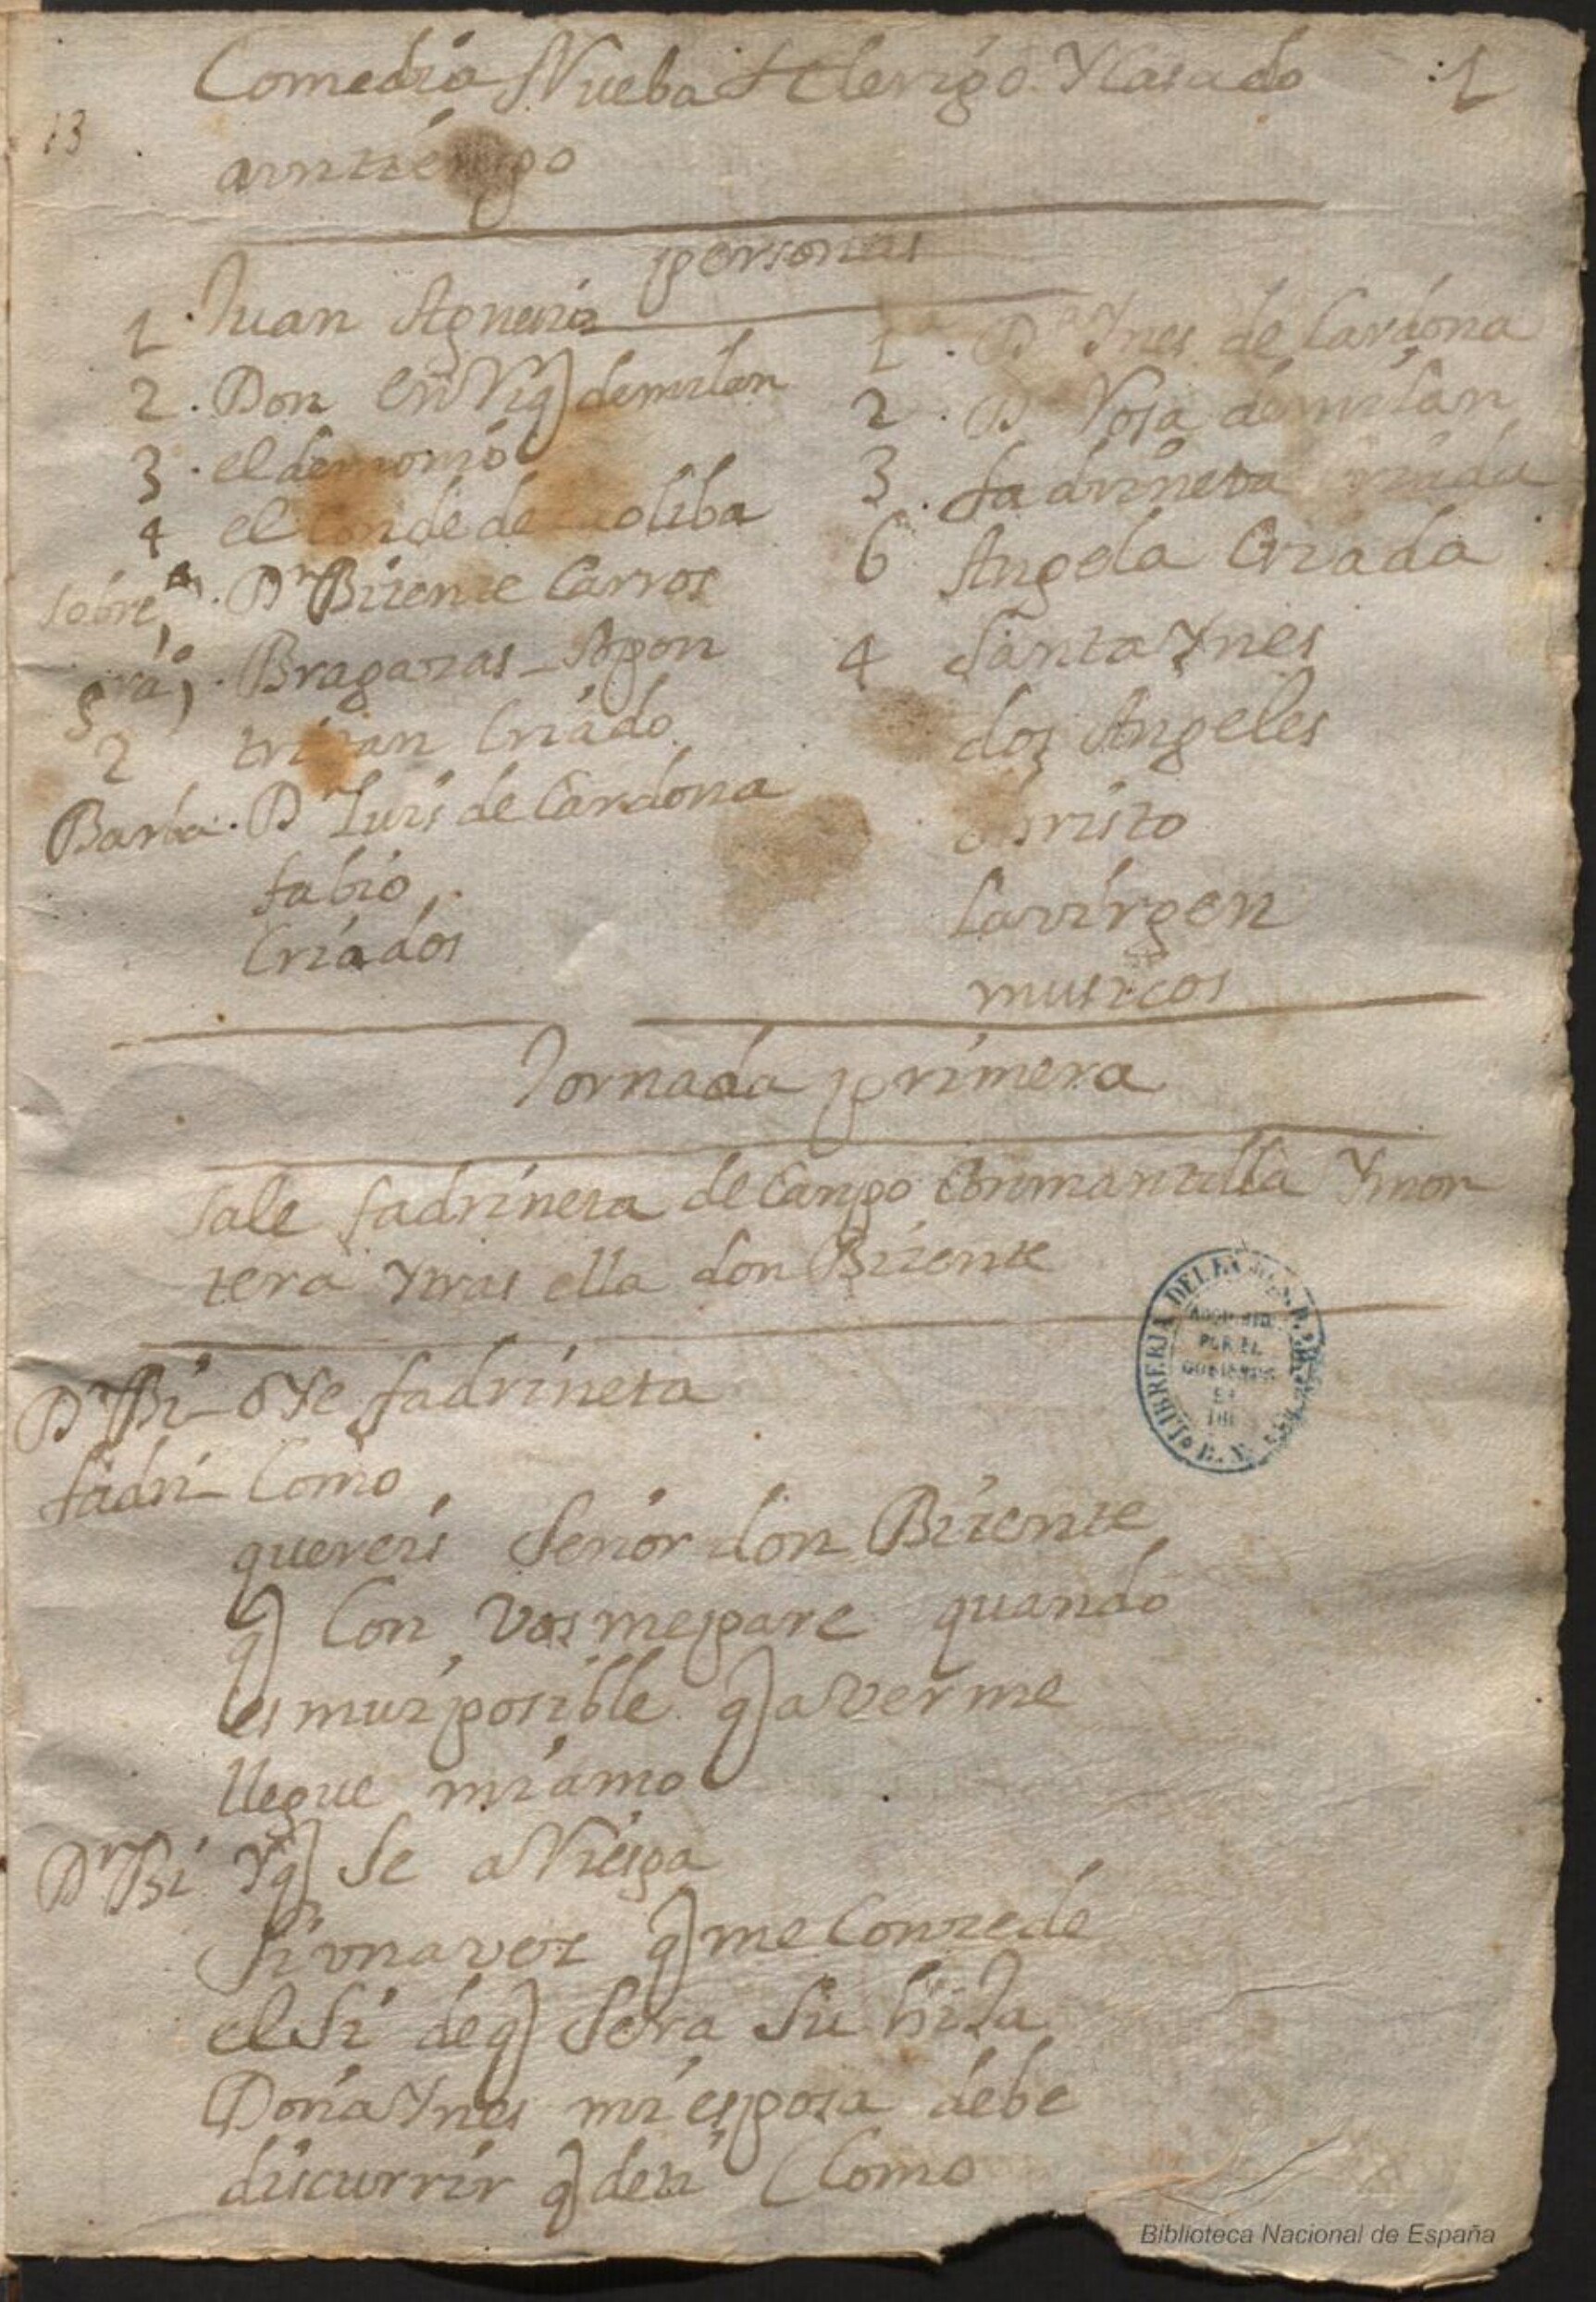 Comedia Nueba Clerigo Y Casado
:1
13
aun tiempo
personas
1 . Juan Agnesio
2 . Don enRiq) de milan
3 . el demonio
4 el Conde de oliba
sobre.te . Dn Bizente Carros
Gra,so 5 . Bragazas _ Sopon
2 tristan Criado
Barba . Dn Luis de Cardona
fabio
Criados
1a . Da Ynes de Cardona
2 . Da Rosa de milan
3 . fadrineta criada
6 Angela Criada
4 Santa Ynes
dos Angeles
christo
La virgen
musicos
Jornada primera
Sale fadrineta de Campo Con mantilla Y mon
tera Y tras ella don Bizente
Dn Bi _ oYe fadrineta
fadri _ Como
quereis Señor don Bizente
q) Con vos me pare quando
es mui posible q) a verme
llegue mi amo
Dn Bi Y q) Se aRiesga
Si una vez q) me Conzede
el Si de q) Sera Su hija
Doña Ynes mi esposa debe
discurrir q) de ti (Como
LIBRERIA DEL EX
ADQUIRIDA
POR EL
GOBIERNO
EN
B. N.
Biblioteca Nacional de España